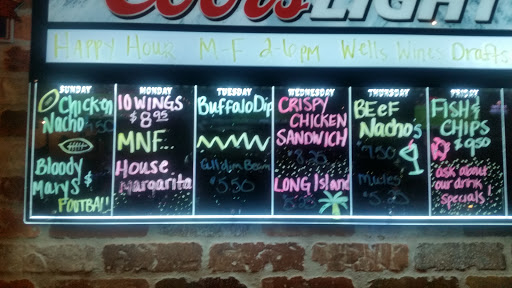 Coors LIGHT
Happy Hour M-F 2-6pm Wells Wines Drafts
SUNDAY
Chicken
Nacho
Bloody
Marys &
FOOTBALL
MONDAY
10 WINGS
$8.95
MNF...
House
Margarita
TUESDAY
Buffalo Dip
$5.50
WEDNESDAY
CRISPY
CHICKEN
SANDWICH
LONG Island
THURSDAY
BEEF
Nachos
FRIDAY
FISH &
CHIPS
$9.50
ask about
our drink
specials!